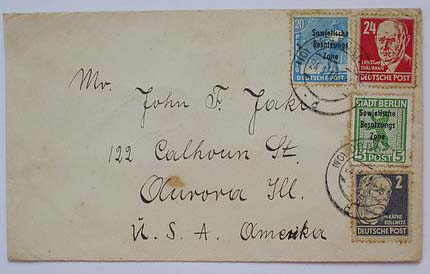 20
Sowjetische
Besatzungs
Zone
DEUTSCHE POST
24
ERNST
THÄLMANN
DEUTSCHE POST
Mr. John F. Jakis
122 Calhoun St.
Aurora Ill.
U. S. A. Amerika
STADT BERLIN
Sowjetische
Besatzungs
Zone
5 POST 15
2
KÄTHE
KOLLWITZ
DEUTSCHE POST